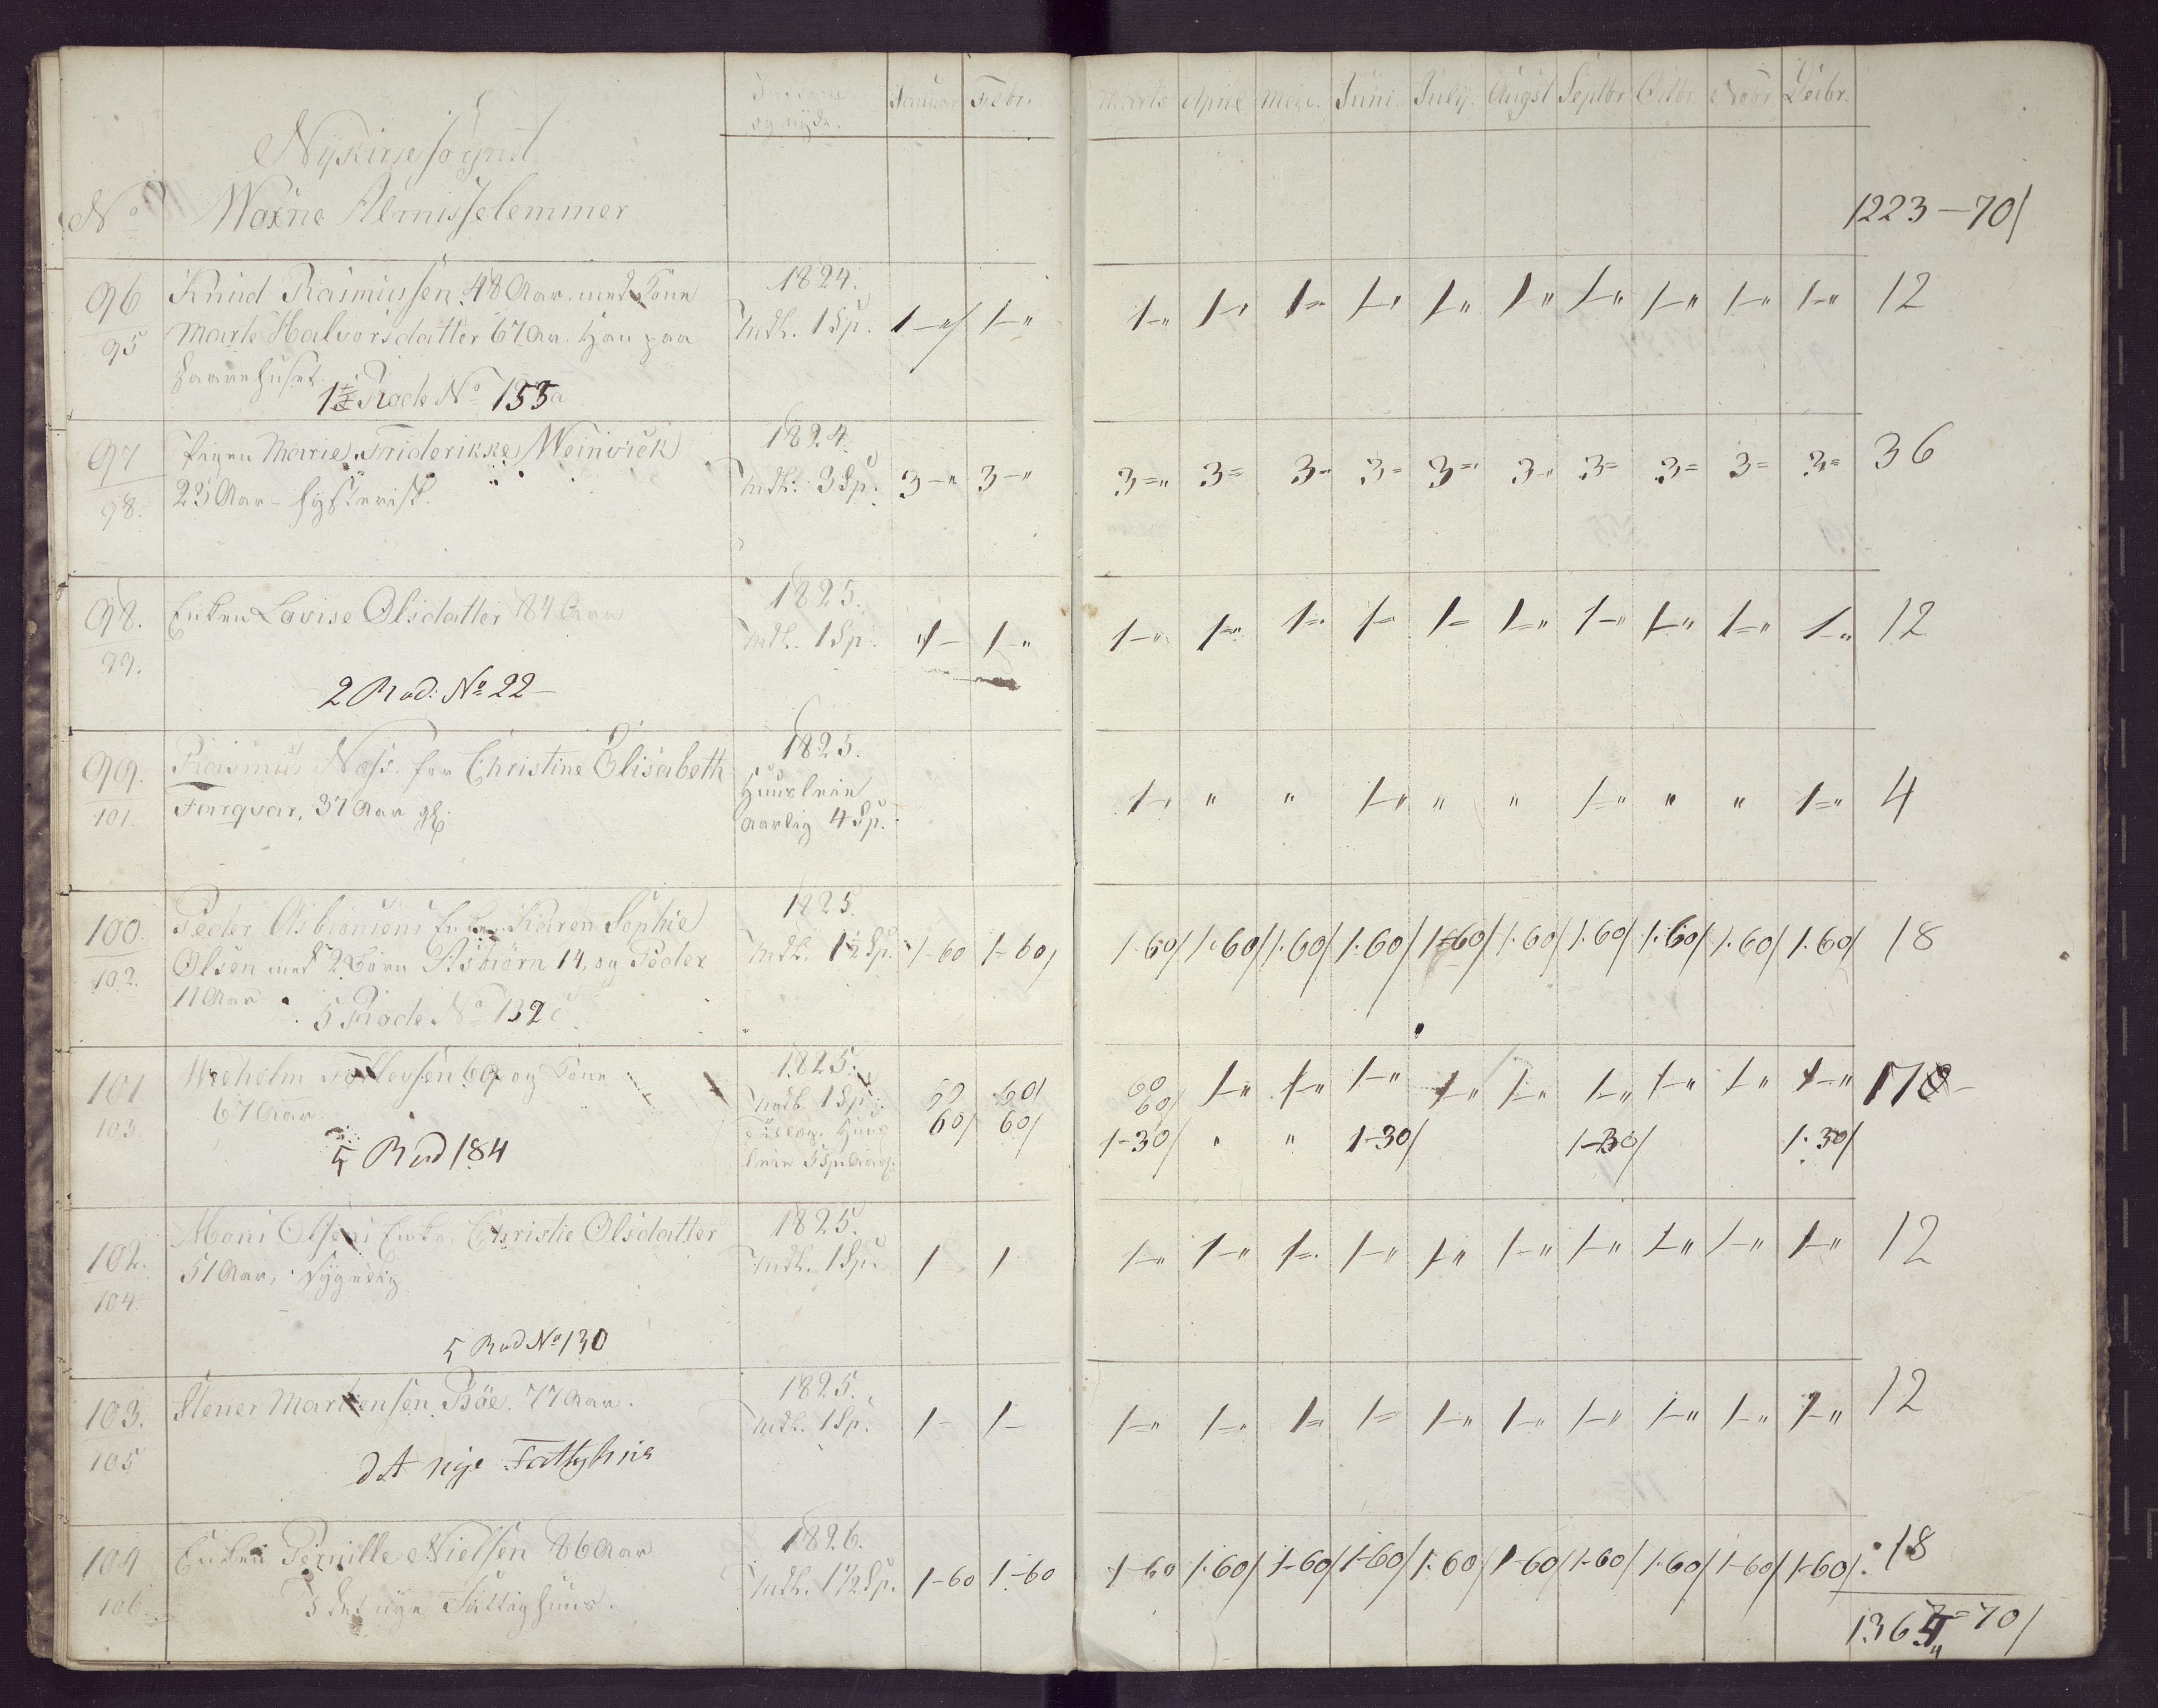 Januar Febr. Marts April Mai. Juni. July. Augst Septbr Octbr. Novbr Decbr.
og nyde.
Nykirkesognet
No Voxne Almisselemmer
1223-70/
96 Knud Rasmussen 48 Aar. med Kone 1824.
95 Marte Halvorsdatter 67 Aar. Han paa Mdl. 1 Sp. 1-" 1-" 1-" 1-" 1-" 1-" 1-" 1-" 1-" 1-" 1-" 1-" 12
1ste Rode No 153a
97 Pigen Marie Friderikke Weinwick 1824.
98. 23 Aar - hysterisk. Mdl. 3 Sp. 3-" 3-" 3=" 3= 3-" 3= 3=" 3-" 3= 3= 3= 3= 36
98. Enken Lovise Olsdatter 84 Aar 1825.
99. Mdl. 1 Sp. 1- 1-" 1-" 1-" 1-" 1- 1- 1-" 1-" 1-" 1-" 1-" 12
2 Rod: No 22 -
99. Rasmus Næss. for Christine Elisabeth 1825.
101. Farqvar, 37 Aar gl. Huusleie
aarlig 4 Sp. 1-" " " 1-" " " 1-" " " 1-" 4
100. Peder Asbionsens Enke Karen Sophie 1825.
102. Olsen med 2 Børn Asbiörn 14, og Peder Mdl. 1½ Sp. 1-60 1-60/ 1-60/ 1.60/ 1.60/ 1.60/ 1-60/ 1.60/ 1.60/ 1.60/ 1.60/ 1.60/ 18
11 Aar
5 Rode No 132c
101 Wilhelm Tollevsen 69 og Kone 1825.
103. 67 Aar Mdl. 1 Sp. 60 60/ 60 1-" 1-" 1-" 1-" 1-" 1-" 1-" 1-" 1-" 17
Tillæg. Huus 60/ 60/ 60/
leie 5 Sp. Aarl. 1-30/ " " 1-30/ 1-30/ 1.30/
5 Rod 184
102. Mons Olsens Enke. Christie Olsdatter 1825.
104. 51 Aar, sygelig Mdl. 1 Sp. 1- 1- 1-" 1-" 1-" 1-" 1-" 1-" 1-" 1-" 1-" 1-" 12
5 Rod No 130
103. Stener Martensen Böe. 77 Aar. 1825.
105 Mdl. 1 Sp. 1- 1- 1-" 1-" 1-" 1-" 1-" 1-" 1-" 1-" 1-" 1-" 12
det nye Fattighus
104 Enken Pernille Nielsen 86 Aar 1826.
106 I det nye Fattighuus. Mdl. 1½ Sp. 1-60 1-60 1-60 1.60/ 1-60/ 1-60/ 1.60/ 1-60/ 1-60/ 1.60/ 1-60/ 1-60/ 18
1364=70/